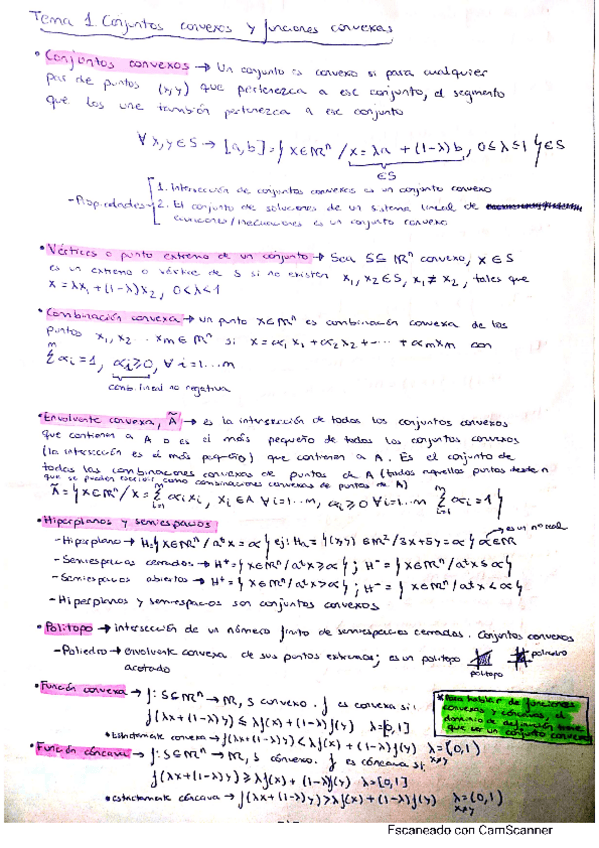 Tema 1 Conjuntos convexos y funciones convexas
• Conjuntos convexos → Un conjunto es convexo si para cualquier
par de puntos (x,y) que pertenezca a ese conjunto, el segmento
que los une también pertenezca a ese conjunto
∀ x,y ∈ S → [a,b] = { x ∈ ℝⁿ / x = λa + (1-λ)b, 0 ≤ λ ≤ 1 } ∈ S
∈ S
- Propiedades
1. Intersección de conjuntos convexos es un conjunto convexo
2. El conjunto de soluciones de un sistema lineal de
ecuaciones/inecuaciones es un conjunto convexo
• Vértices o punto extremo de un conjunto → Sea S ⊆ ℝⁿ convexo, x ∈ S
es un extremo o vértice de S si no existen x₁, x₂ ∈ S, x₁ ≠ x₂, tales que
x = λx₁ + (1-λ)x₂, 0<λ<1
• Combinación convexa → un punto x ∈ ℝⁿ es combinación convexa de los
puntos x₁, x₂ ... xm ∈ ℝⁿ si x = α₁x₁ + α₂x₂ + ... + αmxm con
Σ^m αi = 1, αi ≥ 0, ∀ i = 1...m
comb. lineal no negativa
• Envolvente convexa, Ã → es la intersección de todos los conjuntos convexos
que contienen a A o es el más pequeño de todos los conjuntos convexos
(la intersección es el más pequeño) que contienen a A. Es el conjunto de
todas las combinaciones convexas de puntos de A (todos aquellos puntos
que se pueden escribir como combinaciones convexas de puntos de A)
Ã = { x ∈ ℝⁿ / x = Σ_{i=1}^m αi xi, xi ∈ A ∀ i=1...m, αi ≥ 0 ∀ i=1...m Σ_{i=1}^m αi = 1 }
• Hiperplanos y semiespacios
es un nº real
- Hiperplano → H = { x ∈ ℝⁿ / aᵗx = α } ej: Hα = { (x,y) ∈ ℝ² / 3x+5y = α } α ∈ ℝ
- Semiespacios cerrados → H⁺ = { x ∈ ℝⁿ / aᵗx ≥ α } ; H⁻ = { x ∈ ℝⁿ / aᵗx ≤ α }
- Semiespacios abiertos → H⁺ = { x ∈ ℝⁿ / aᵗx > α } ; H⁻ = { x ∈ ℝⁿ / aᵗx < α }
- Hiperplanos y semiespacios son conjuntos convexos
• Politopo → intersección de un número finito de semiespacios cerrados. Conjuntos convexos
- Poliedro → envolvente convexa de sus puntos extremos; es un politopo
acotado
politopo
poliedro
• Función convexa → f: S ⊆ ℝⁿ → ℝ, S convexo. f es convexa si:
f(λx + (1-λ)y) ≤ λf(x) + (1-λ)f(y) λ = [0,1]
• Estrictamente convexa → f(λx + (1-λ)y) < λf(x) + (1-λ)f(y) λ = (0,1)
x≠y
* Para hablar de funciones
convexas y cóncavas, el
dominio de definición tiene
que ser un conjunto convexo
• Función cóncava → f: S ⊆ ℝⁿ → ℝ, S convexo. f es cóncava si:
f(λx + (1-λ)y) ≥ λf(x) + (1-λ)f(y) λ = [0,1]
• estrictamente cóncava → f(λx + (1-λ)y) > λf(x) + (1-λ)f(y) λ = (0,1)
x≠y
Escaneado con CamScanner